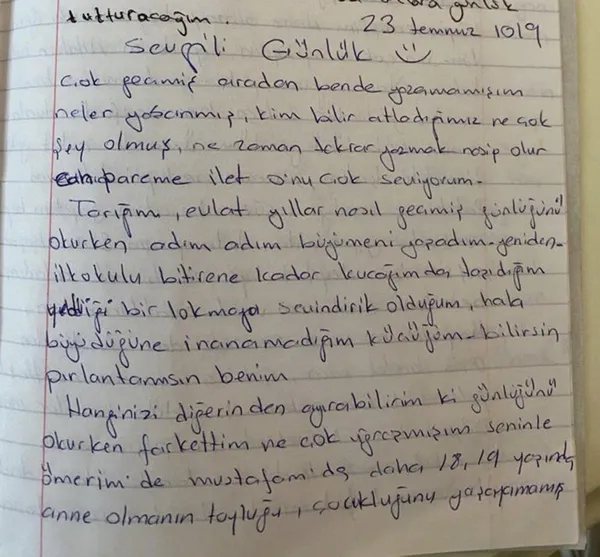 günlük
tutturacağım. 23 temmuz 1019
Sevgili Günlük
Çok geçmiş aradan bende yazamamışım
neler yaşanmış, kim bilir atladığımız ne çok
şey olmuş, ne zaman tekrar yazmak nasip olur
pareme ilet onu çok seviyorum.
Tarığım, evlat yıllar nasıl geçmiş günlüğünü
okurken adım adım büyümeni yaşadım yeniden
ilkokulu bitirene kadar kucağımda taşıdığım
yediği bir lokmaya sevindirik olduğum, hala
büyüdüğüne inanamadığım küçüğüm bilirsin
pırlantamsın benim
Hanginizi diğerinden ayırabilirim ki günlüğünü
okurken farkettim ne çok uğraşmışım seninle
ömerim de mustafam da daha 18, 19 yaşında
anne olmanın toyluğu, çocukluğunu yaşayamamış